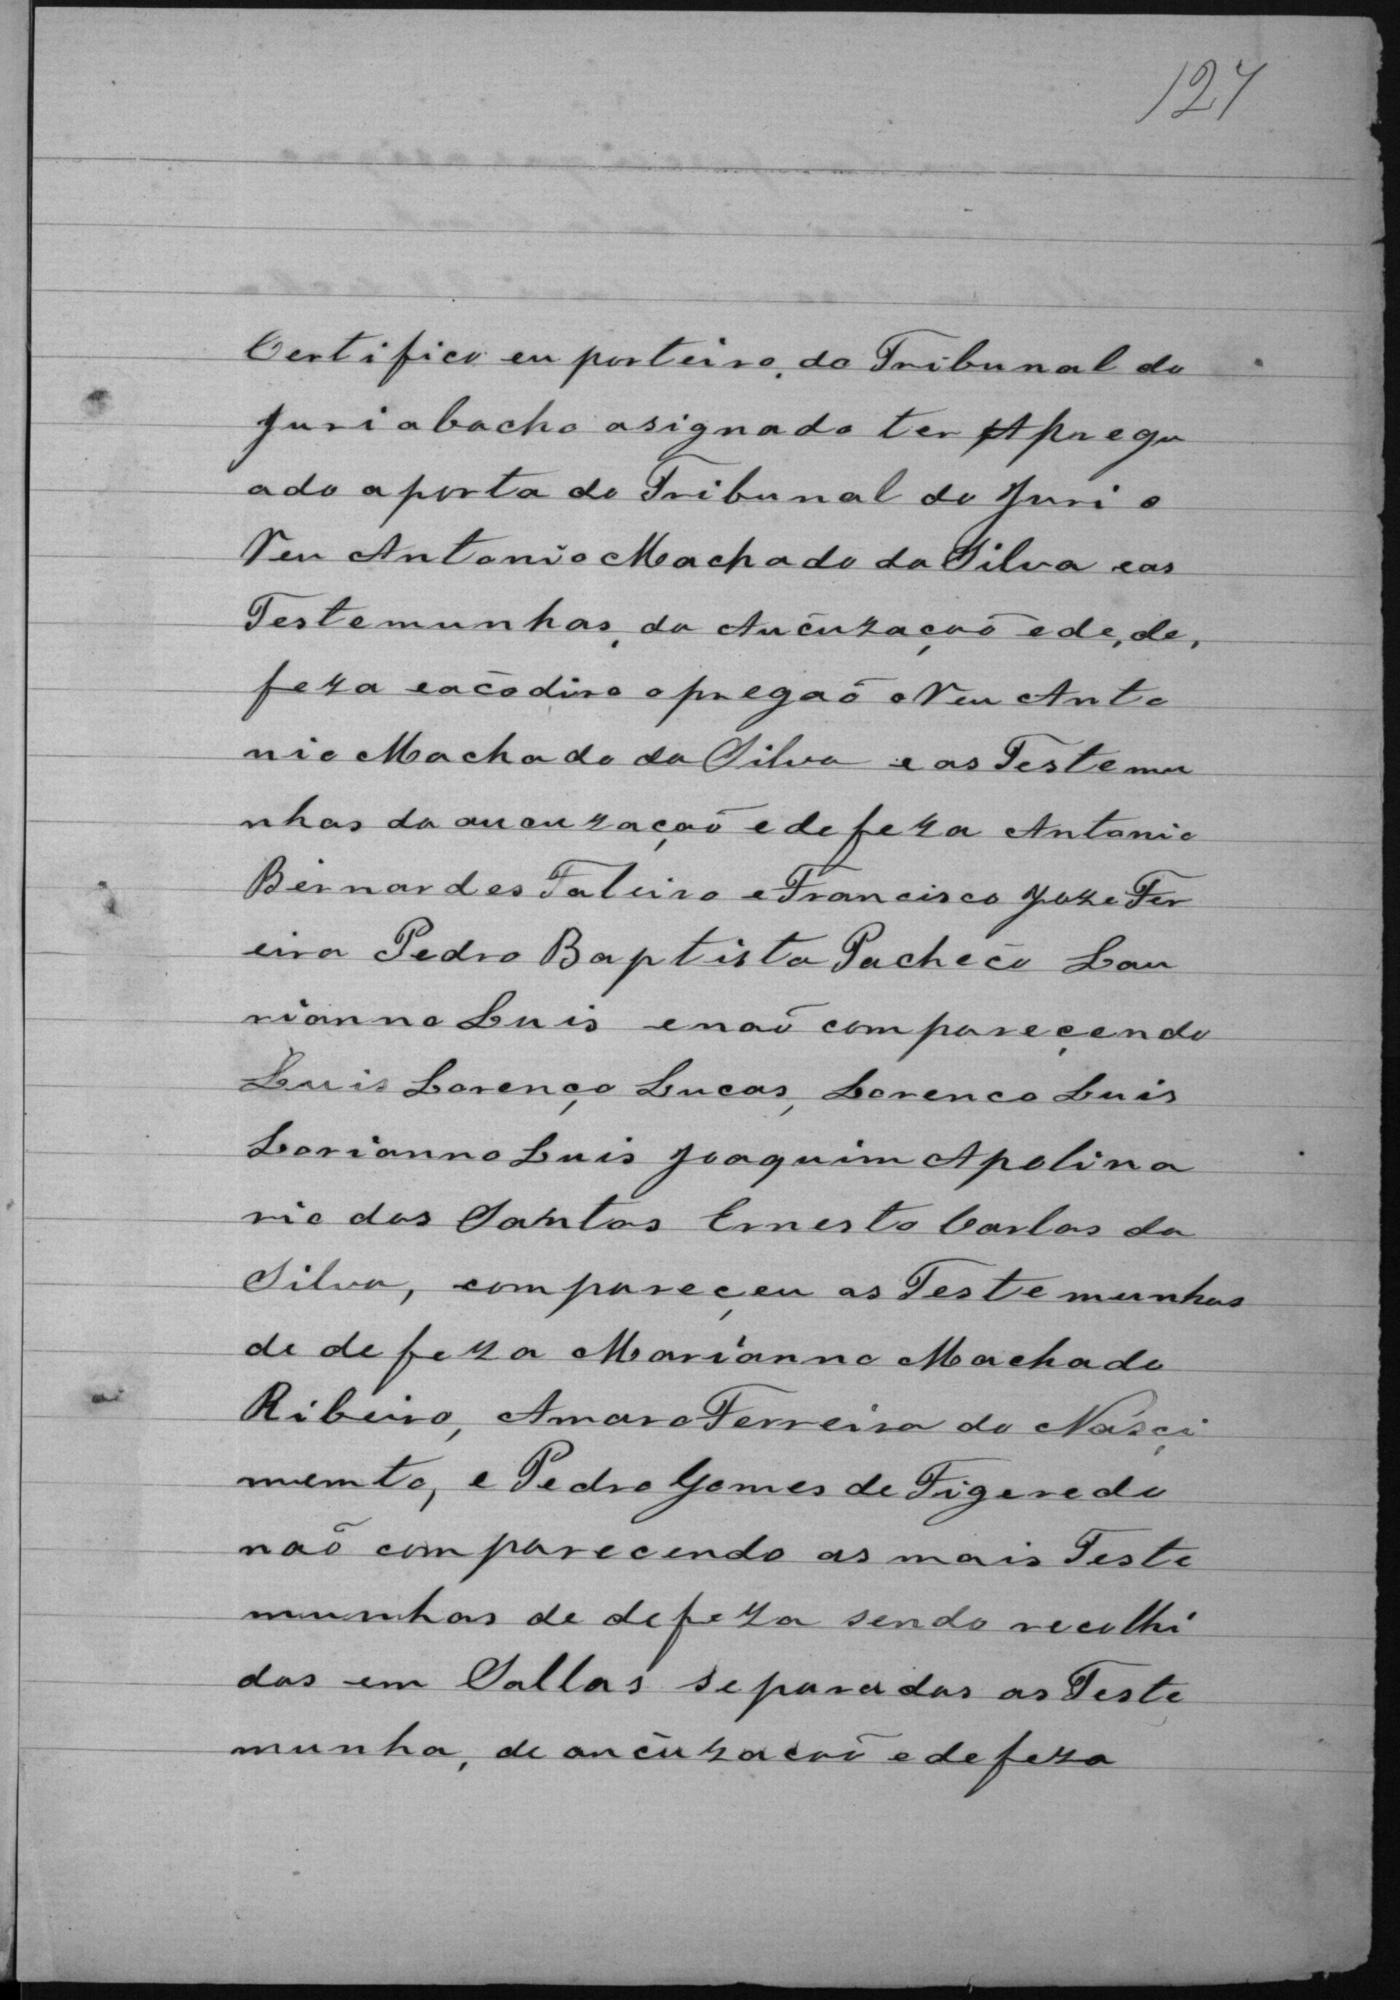 127
Certifico eu porteiro, do Tribunal do
Juri abacho asignado ter Apregu
ado a porta do Tribunal do Juri o
Reu Antonio Machado da Silva eas
Testemunhas, da Aucuzaçaõ e de, de,
feza eacodiro o pregaõ o Reu Anto
nio Machado da Silva e as Testemu
nhas da aucuzaçaõ e defeza Antonio
Bernardes Faleiro e Francisco Joze Fer
eira Pedro Baptista Pacheco Lau
rianno Luis enaõ compareçendo
Luis Lorenço Lucas, Lorenco Luis
Lorianno Luis Joaquim Apolina
rio dos Santos Ernesto Carlos da
Silva, compareçeu as Testemunhas
de defeza Marianno Machado
Ribeiro, Amaro Ferreira do Nasçi
memto, e Pedro Gomes de Figeredo
naõ comparecendo as mais Teste
munhas de defeza sendo recolhi
das em Sallas separadas as Teste
munha, de aucuzacaõ e defeza